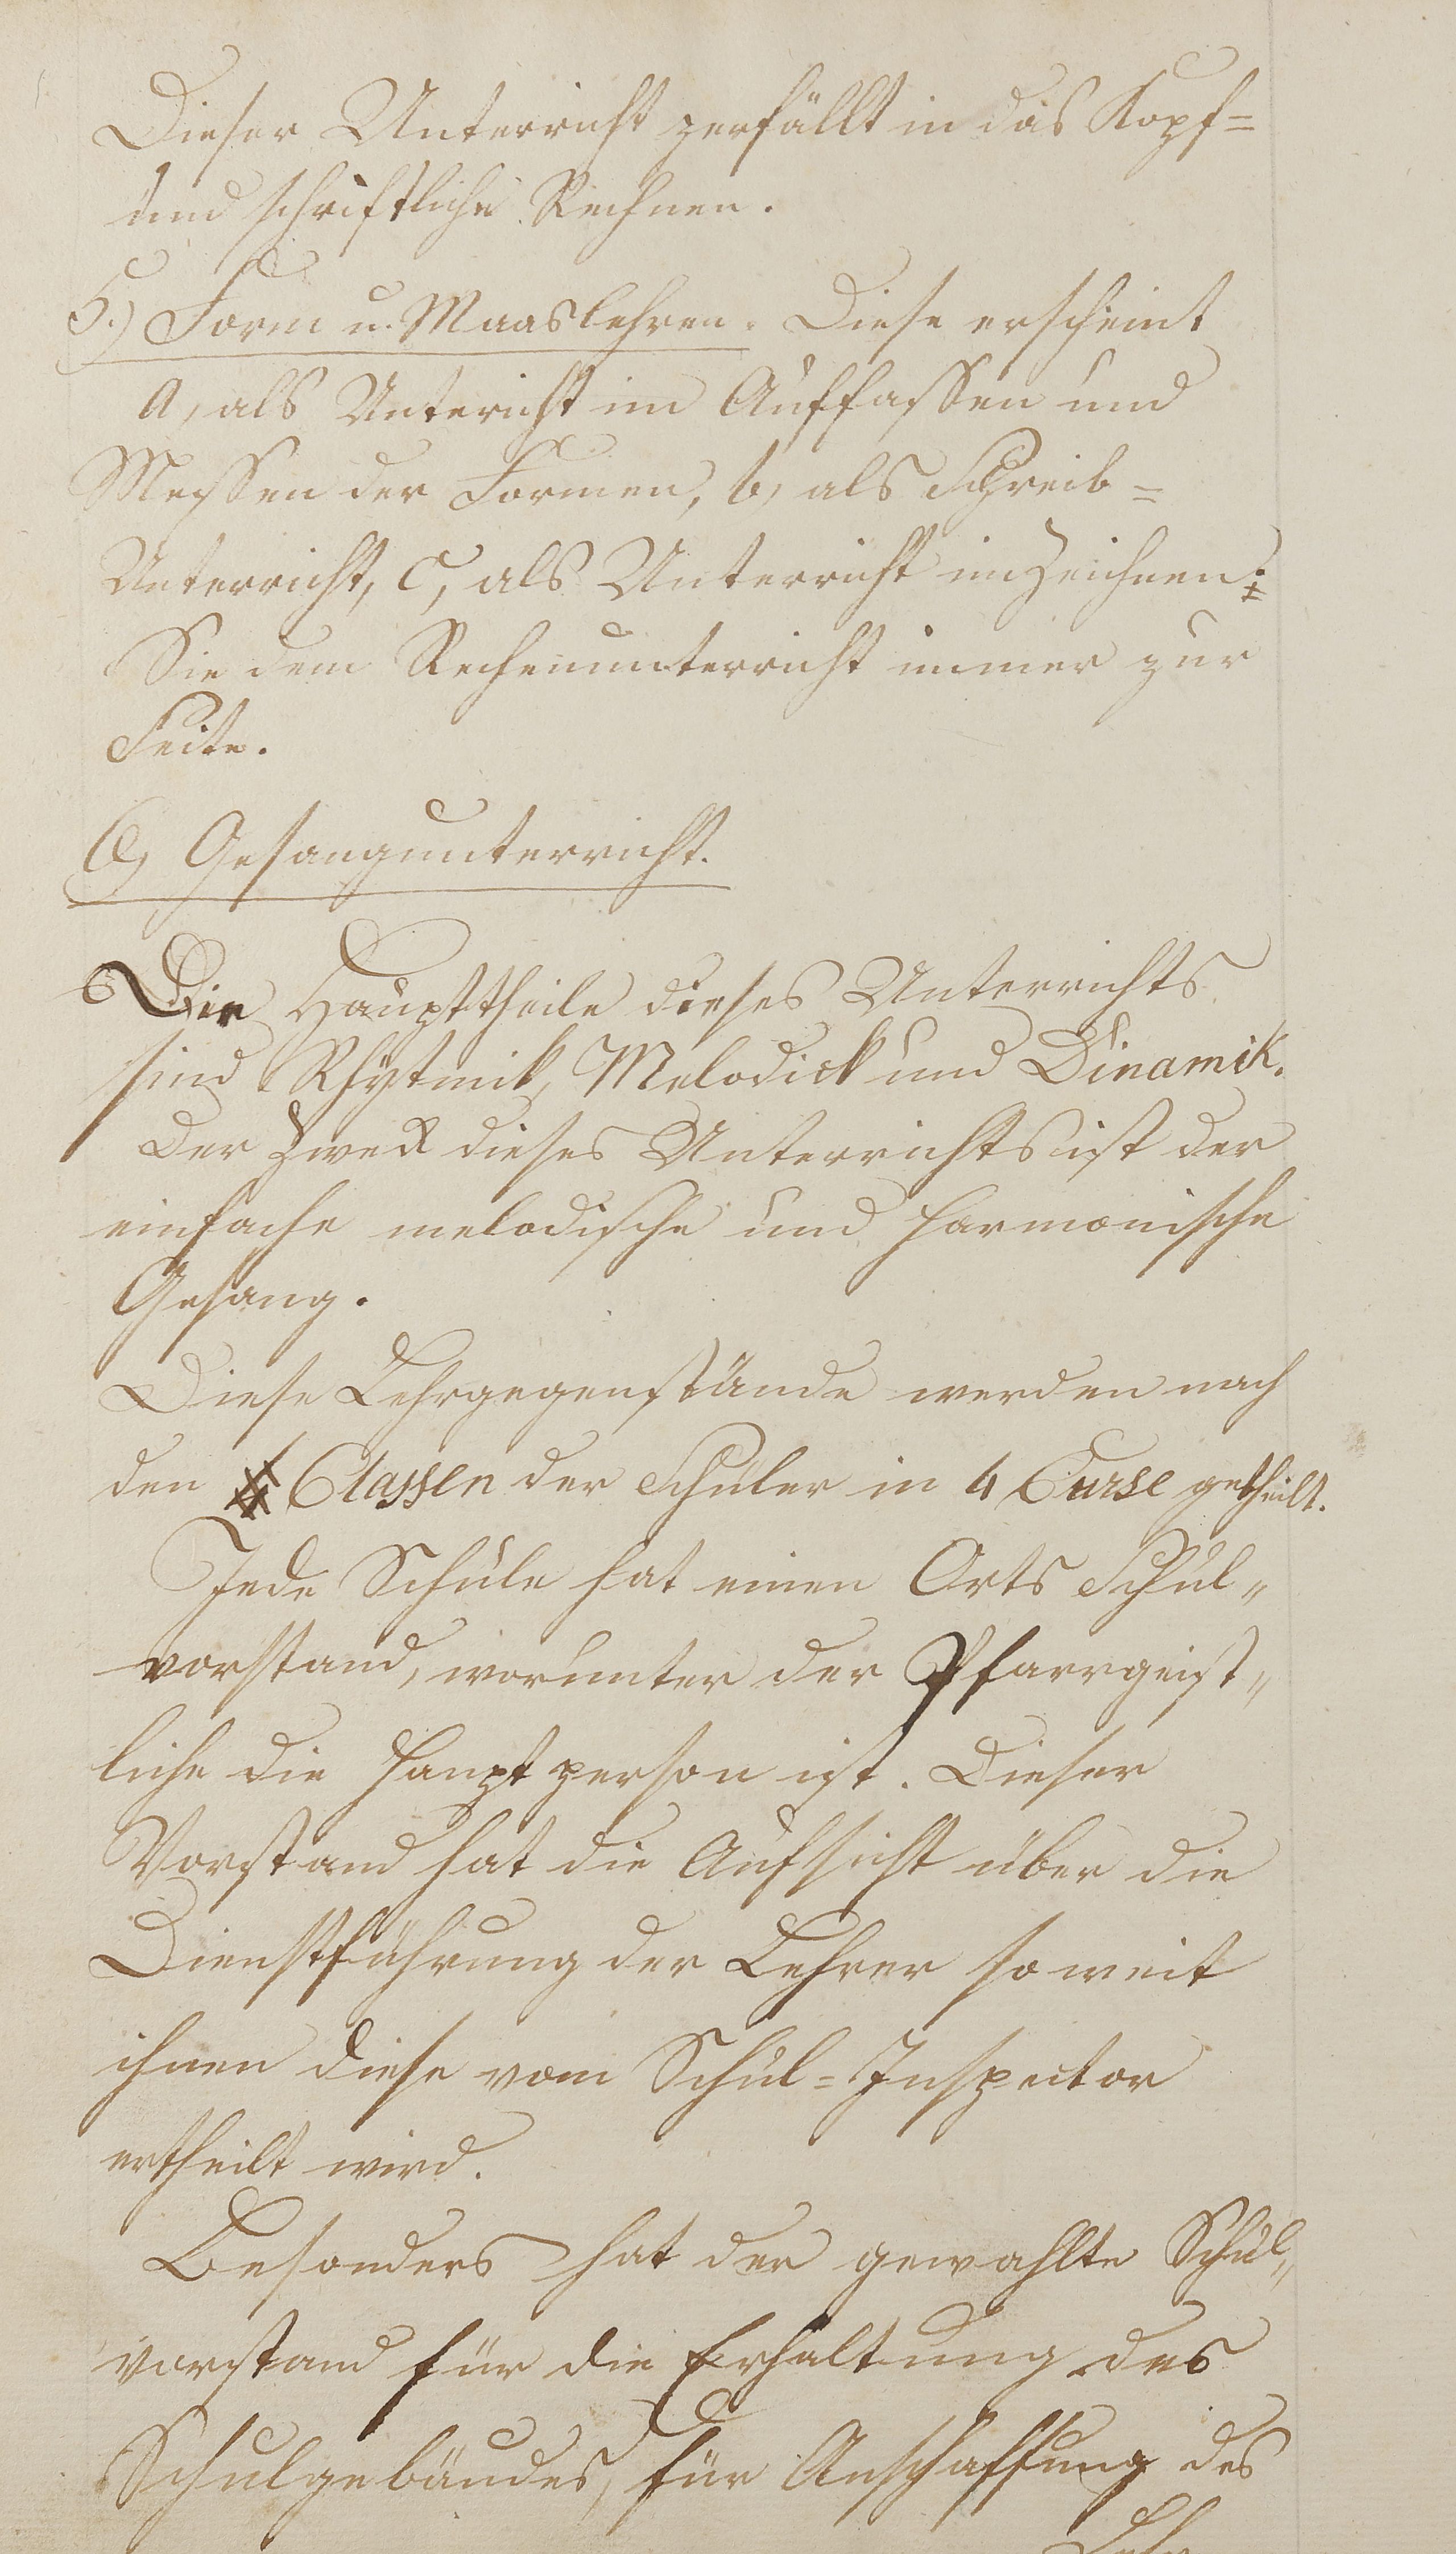 Dieser Unterricht zerfällt in das Kopf=
und schriftliche Rechnen.
5.) Form u. Maaslehren. Diese erscheint
a, als Untericht im Auffassen und
Messen der Formen, b, als Schreib=
Unterricht, c, als Unterricht im Zeichnen:
Sie dem Rechenunterricht immer zur
Seite.
6, Gesangunterricht.
Die Haupttheile dieses Unterrichts
sind Rhytmik, Melodick und Dinamik.
Der Zwek dieses Unterrichts ist der
einfache melodische und harmonische
Gesang.
Diese Lehrgegenstände werden nach
den 4 Classen der Schüler in 4 Curse getheilt.
Jede Schule hat einen Orts Schul„
vorstand, worunter der Pfarrgeist„
liche die Hauptperson ist. Dieser
Vorstand hat die Aufsicht über die
Dienstführung der Lehrer so weit
ihnen diese vom Schul=Inspector
ertheilt wird.
Besonders hat der gewahlte Schul„
vorstand für die Erhaltung des
Schulgebäudes, für Anschaffung des
Lehr